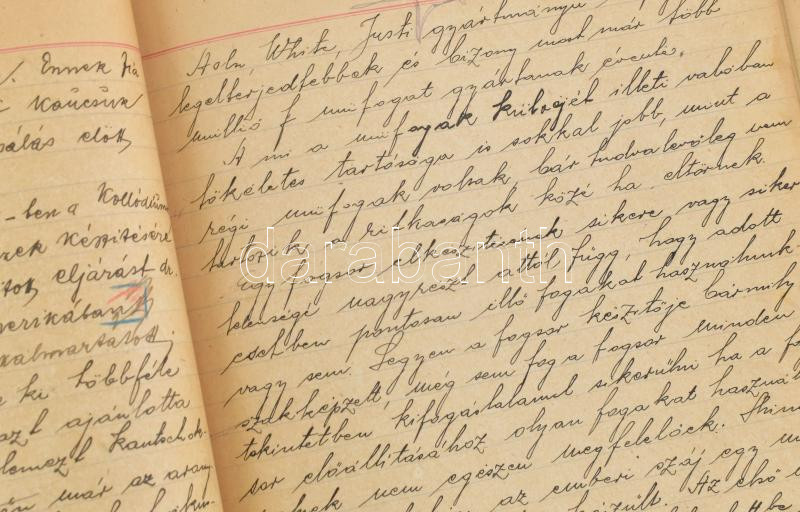 /. Ennek
kaucsuk
előtt
-ben a Kollódium
készitésére
eljárást dr.
merikában
ki többféle
azt ajánlotta
lemezt kautschok-
már az arany
Ash, White, Justi gyártmányu
legelterjedtebbek és bizony most már több
millió műfogat gyártanak évente.
A mi a műfogak külsejét illeti valóban
tökéletes tartóssága is sokkal jobb, mint a
régi műfogak voltak, bár tudvalevőleg nem
tartozik a ritkaságok közé ha eltörnek.
Egy fogsor elkészitésének sikere vagy siker
telensége nagyrészt attól függ, hogy adott
esetben pontosan illő fogakat használunk
vagy sem. Legyen a fogsor készitője bármily
szakképzett, még sem fog a fogsor minden
tekintetben kifogástalanul sikerülni ha a fog
sor előállitásához olyan fogakat használ
nem egészen megfelelőek.
az emberi száj egy
készült. Az első
darabanth